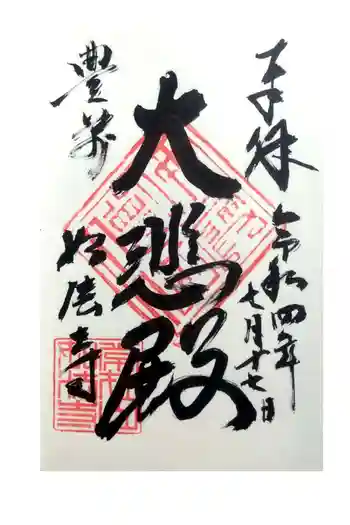 奉拝
令和四年
七月十七日
大悲殿
豊前
如法寺